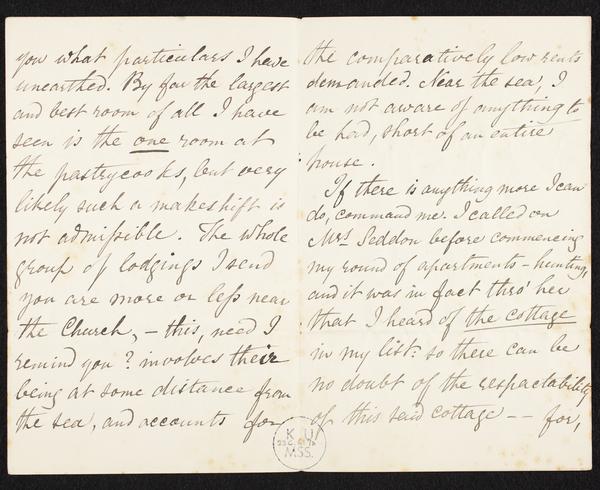 you what particulars I have
unearthed. By far the largest
and best room of all I have
seen is the one room at
the pastrycooks, but very
likely such a makeshift is
not admissible. The whole
group of lodgings I send
you are more or less near
the Church, – this, need I
remind you? involves their
being at some distance from
the sea, and accounts for
the comparatively low rents
demanded. Near the sea, I
am not aware of anything to
be had, short of an entire
house.
If there is anything more I can
do, command me. I called on
Mrs. Seddon before commencing
my round of apartments-hunting,
and it was in fact thro' her
that I heard of the cottage
in my list: so there can be
no doubt of the respectability
of this said cottage –– for,
K U
MSS.